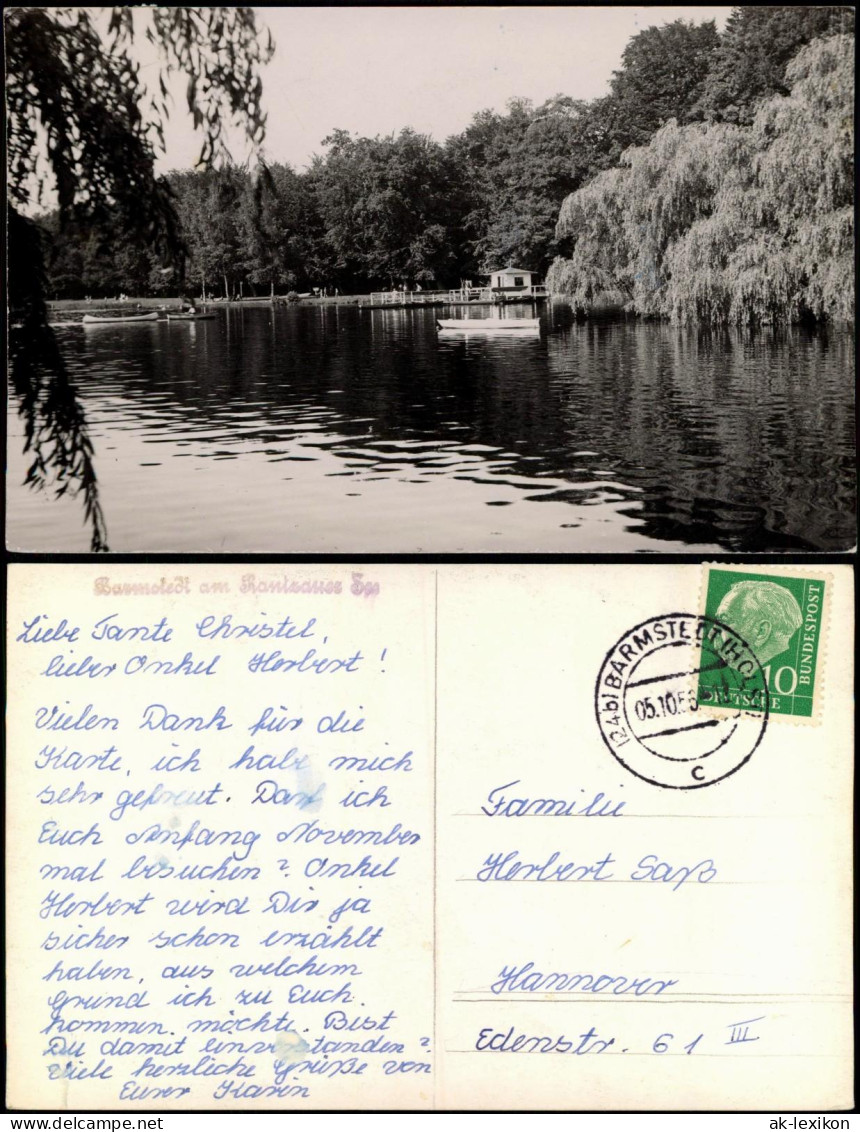 Barmstedt am Rantzauer See
Liebe Tante Christel,
lieber Onkel Herbert!
Vielen Dank für die
Karte, ich habe mich
sehr gefreut. Darf ich
Euch Anfang November
mal besuchen? Onkel
Herbert wird Dir ja
sicher schon erzählt
haben, aus welchem
Grund ich zu Euch
kommen möchte. Bist
Du damit einverstanden?
Viele herzliche Grüße von
Eurer Karin
(24b) BARMSTEDT (HOLST)
05.10.56
c
10
BUNDESPOST
DEUTSCHE
Familie
Herbert Saß
Hannover
Edenstr. 61 III
www.delcampe.net
ak-lexikon